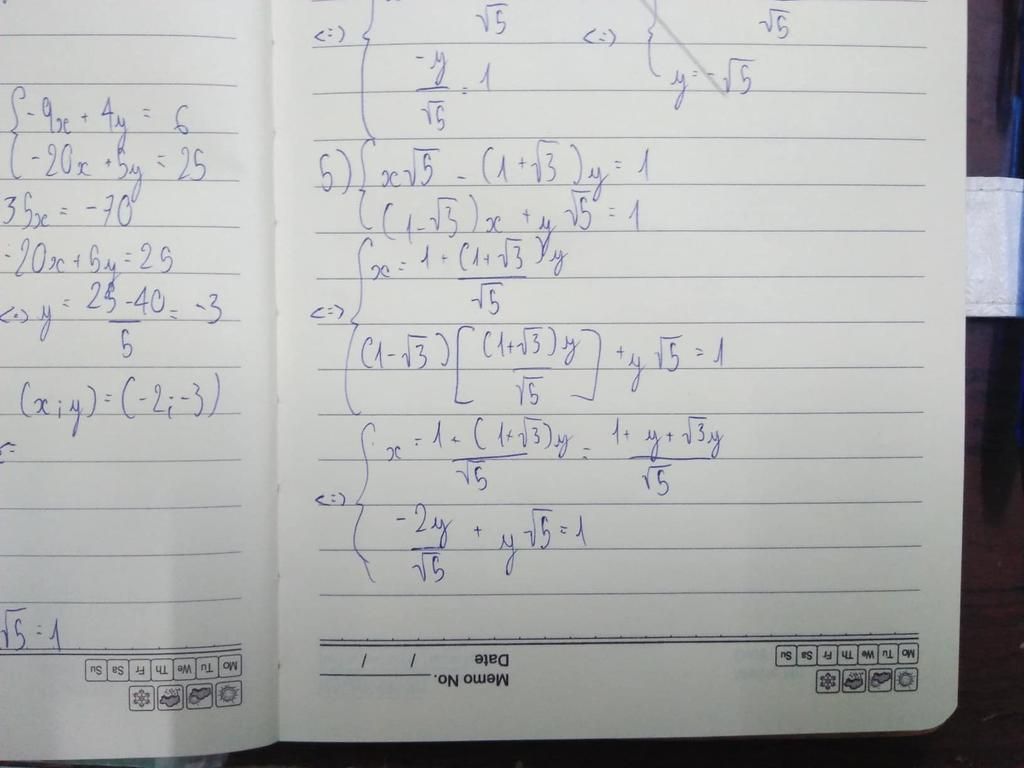 {-9x + 4y = 6
{-20x + 5y = 25
35x = -70
-20x + 5y = 25
<=> y = (25 - 40)/5 = -3
(x; y) = (-2; -3)
√5 = 1
Mo Tu We Th Fr Sa Su
<=> { √5 <=> { √5
-y/√5 = 1 y = -√5
5) { x√5 - (1+√3)y = 1
{ (1-√3)x + y√5 = 1
<=> { x = (1 + (1+√3)y)/√5
{ (1-√3)[(1+√3)y/√5] + y√5 = 1
<=> { x = (1 + (1+√3)y)/√5 = (1 + y + √3y)/√5
{ -2y/√5 + y√5 = 1
Memo No.
Date / /
Mo Tu We Th Fr Sa Su